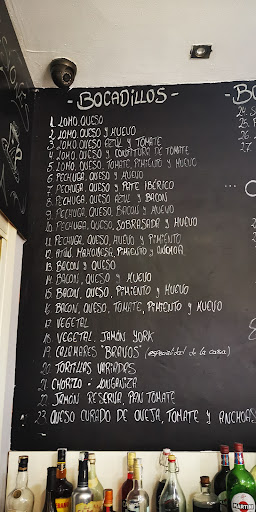 - BOCADILLOS -
1 LOMO, QUESO
2 LOMO, QUESO Y HUEVO
3 LOMO, QUESO AZUL Y TOMATE
4 LOMO, QUESO Y CONFITURA DE TOMATE
5 LOMO, QUESO, TOMATE, PIMIENTO Y HUEVO
6 PECHUGA, QUESO Y HUEVO
7 PECHUGA, QUESO Y PATE IBÉRICO
8 PECHUGA, QUESO AZUL Y BACON
9 PECHUGA, QUESO, BACON Y HUEVO
10 PECHUGA, QUESO, SOBRASADA Y HUEVO
11 PECHUGA, QUESO, HUEVO Y PIMIENTO
12 ATÚN, MAYONESA, PIMIENTO Y ANCHOA
13 BACON Y QUESO
14 BACON, QUESO Y HUEVO
15 BACON, QUESO, PIMIENTO Y HUEVO
16 BACON, QUESO, TOMATE, PIMIENTO Y HUEVO
17 VEGETAL
18 VEGETAL JAMÓN YORK
19 CALAMARES "BRAVOS" (especialidad de la casa)
20 TORTILLAS VARIADAS
21 CHORIZO - LONGANIZA
22 JAMÓN RESERVA, PAN TOMATE
23 QUESO CURADO DE OVEJA, TOMATE Y ANCHOAS
- BO
24
25
26
27
MARTINI